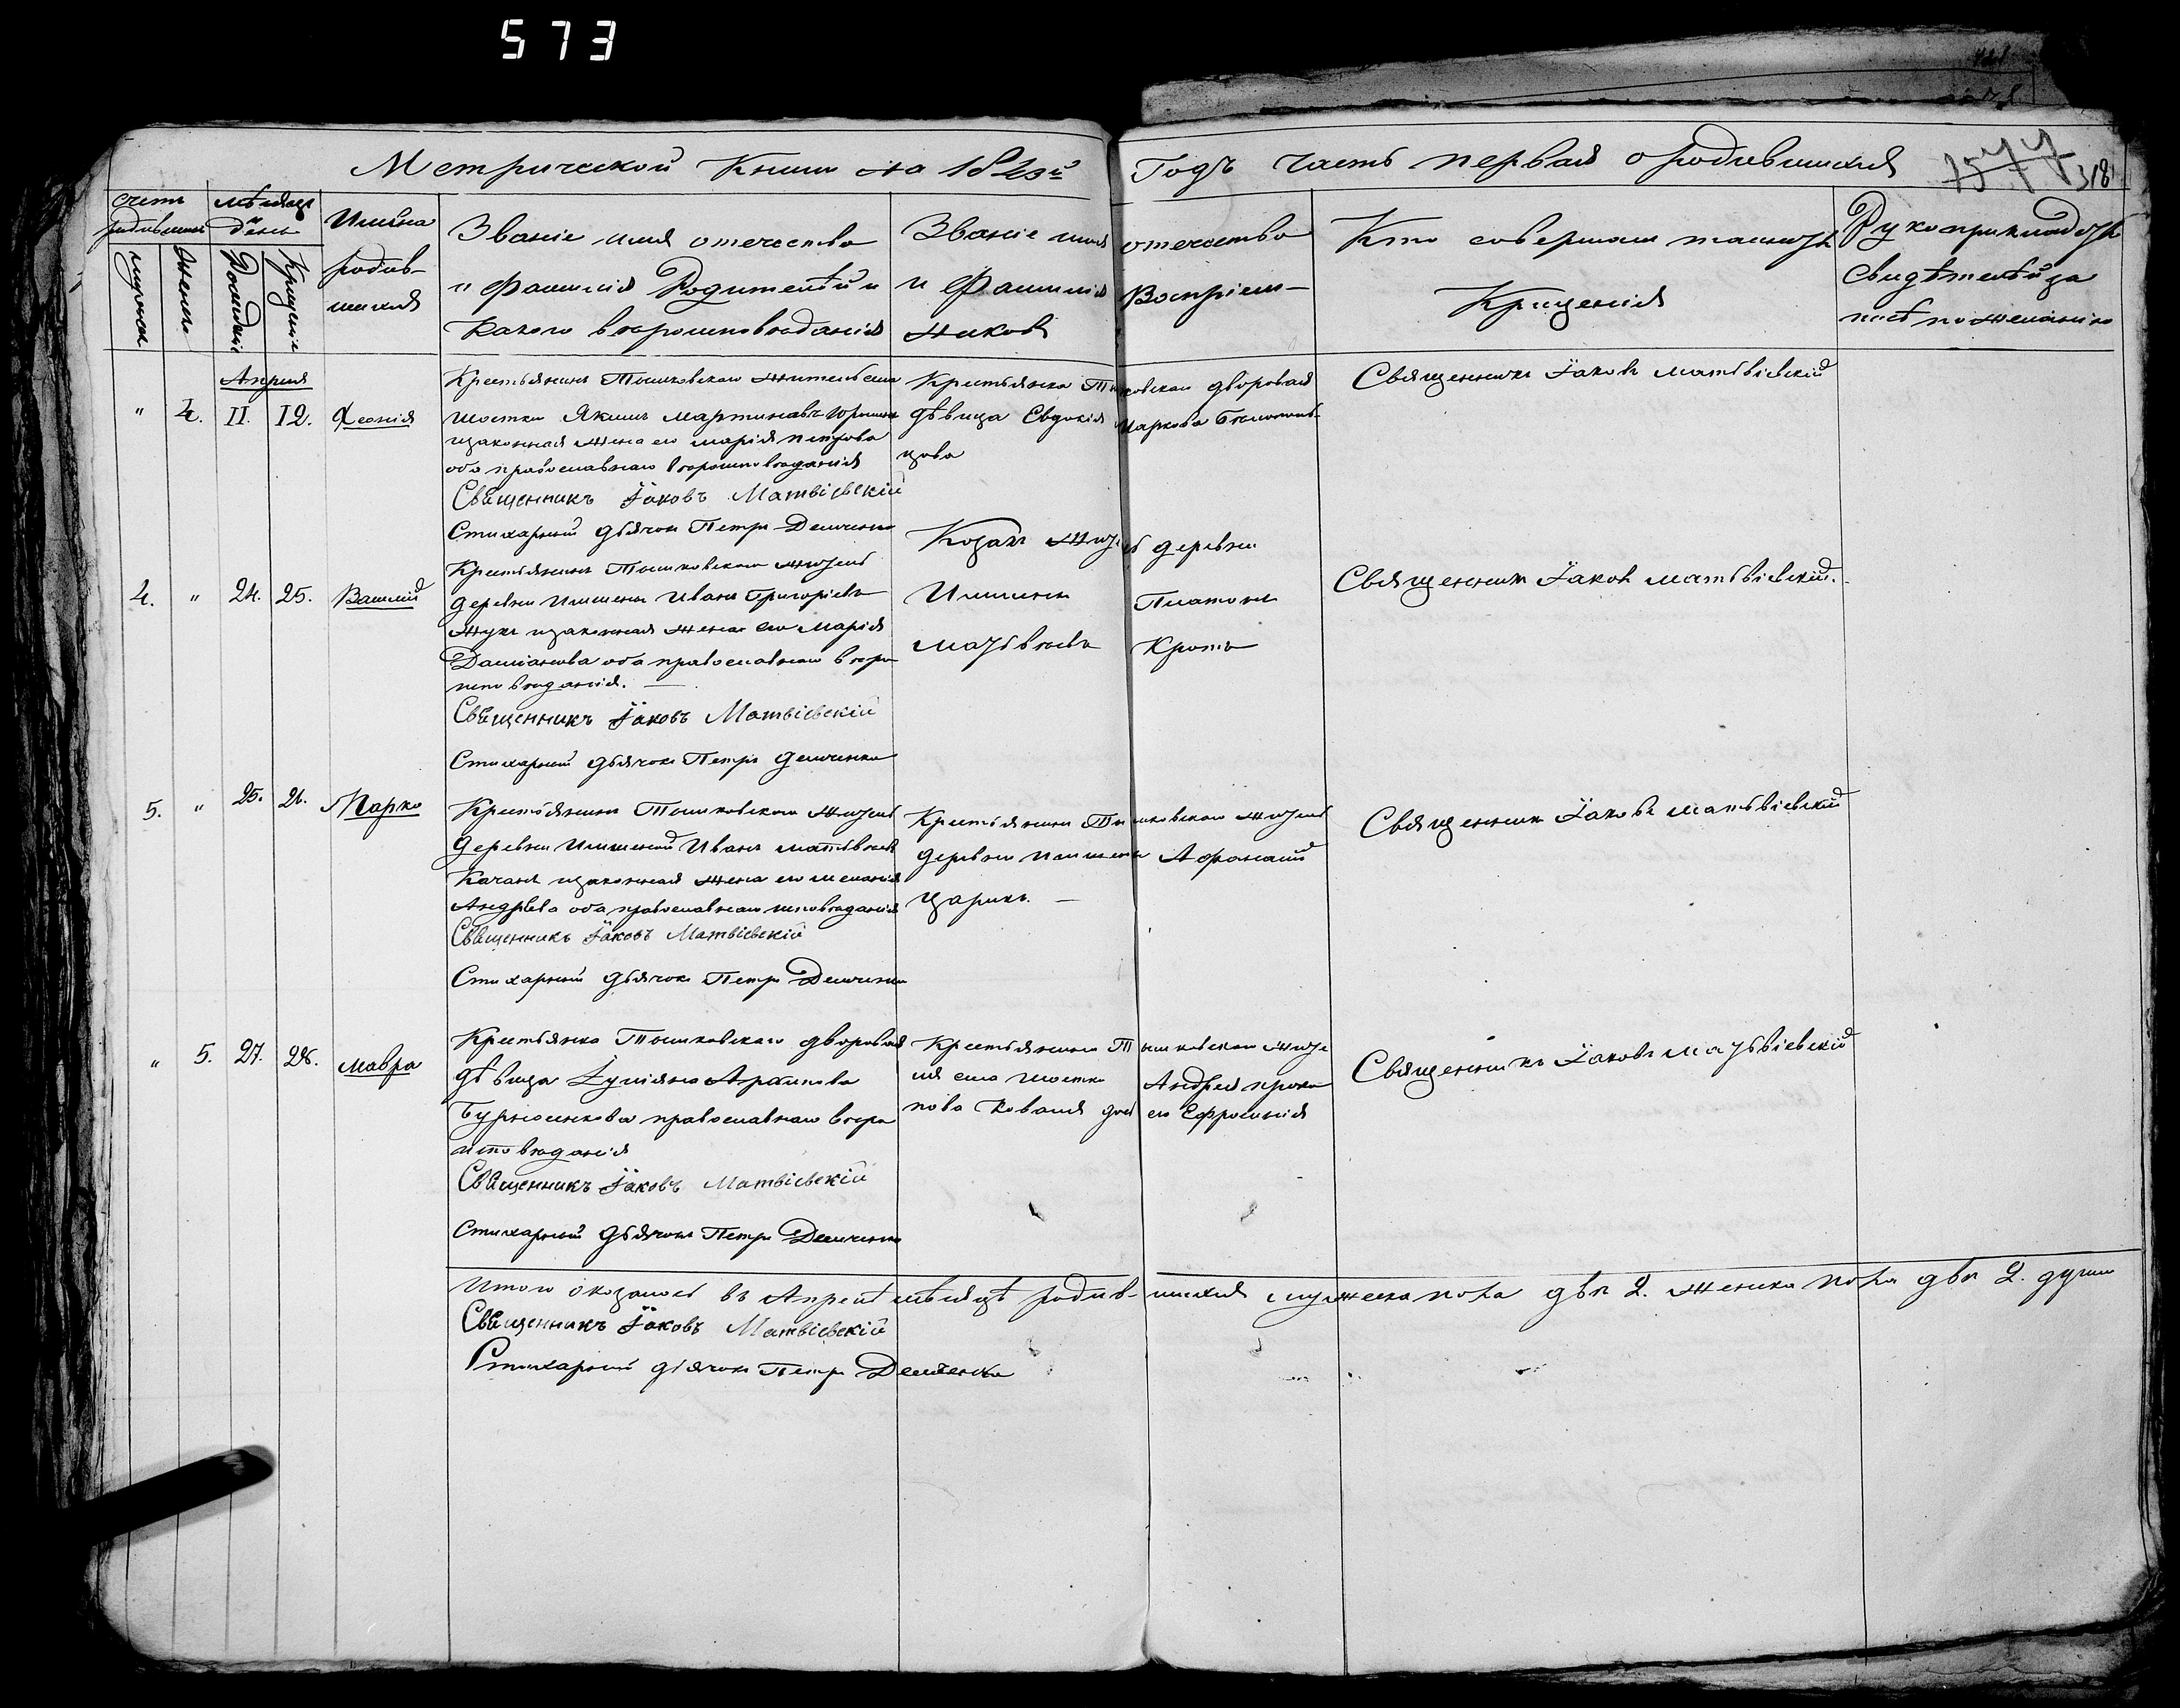 573
Метрической Книги на 1843й Годъ часть первая о родившихся
318
счетъ родившихся
мѣсяцъ и день
Имѣна родив-
шихся
мужеска
женска
Рожденія
Крещенія
Званіе имя отечество
и Фамилія Родителѣй и
Какого вѣроисповѣданія
Званіе имя отечество
и Фамилія Воспріем-
никовъ
Кто совершалъ таинство
Крещенія
Рукоприкладство
свидѣтелѣй за
писѣ по желанію
Апреля
" 4. 11. 12.
Крестьянинъ Тышковскаго житель села
шостки Якимъ Мартиновъ
изаконная жена его Марія Петрова
оба православнаго вѣроисповѣданія
Священникъ Іаковъ Матвіевскій
Стихарный дьячокъ Петръ Демченко
Крестьянка Тышковскаго дворовая
дѣвица Евдокія Маркова
Священникъ Іаковъ Матвѣіевскій
4. " 24. 25. Василій
Крестьянинъ Тышковскаго житель
деревни Иваницы Иванъ Григоріевъ
Жукъ изаконная жена его Марія
Даміанова оба православнаго вѣро
исповѣданія.
Священникъ Іаковъ Матвіевскій
Стихарный дьячокъ Петръ Демченко
Козакъ житель деревни
Платонъ
Матвѣевъ Кротъ
Священникъ Іаковъ Матвѣіевскій.
5. " 25. 26. Марко
Крестьянинъ Тышковскаго житель
деревни Иванъ Матвѣевъ
Качанъ изаконная жена его Меланія
Андрѣева оба православнаго исповѣданія
Священникъ Іаковъ Матвіевскій
Стихарный дьячокъ Петръ Демченко
Крестьянинъ Тышковскаго житель
деревни Афанасій
Царикъ.
Священникъ Іаковъ Матвѣіевскій
" 5. 27. 28. Мавра
Крестьянка Тышковскаго дворовая
дѣвица
православнаго вѣро
исповѣданія
Священникъ Іаковъ Матвіевскій
Стихарный дьячокъ Петръ Демченко
Крестьянина Тышковскаго жите
ля села шостки Андрея Проко
пова Коваля дочь его Ефросинія
Священникъ Іаковъ Матвѣіевскій
Итого оказалось въ Апрелѣ мѣсяцѣ родив-шихся мужеска пола два 2. женска пола два 2. души
Священникъ Іаковъ Матвіевскій
Стихарный дьячокъ Петръ Демченко